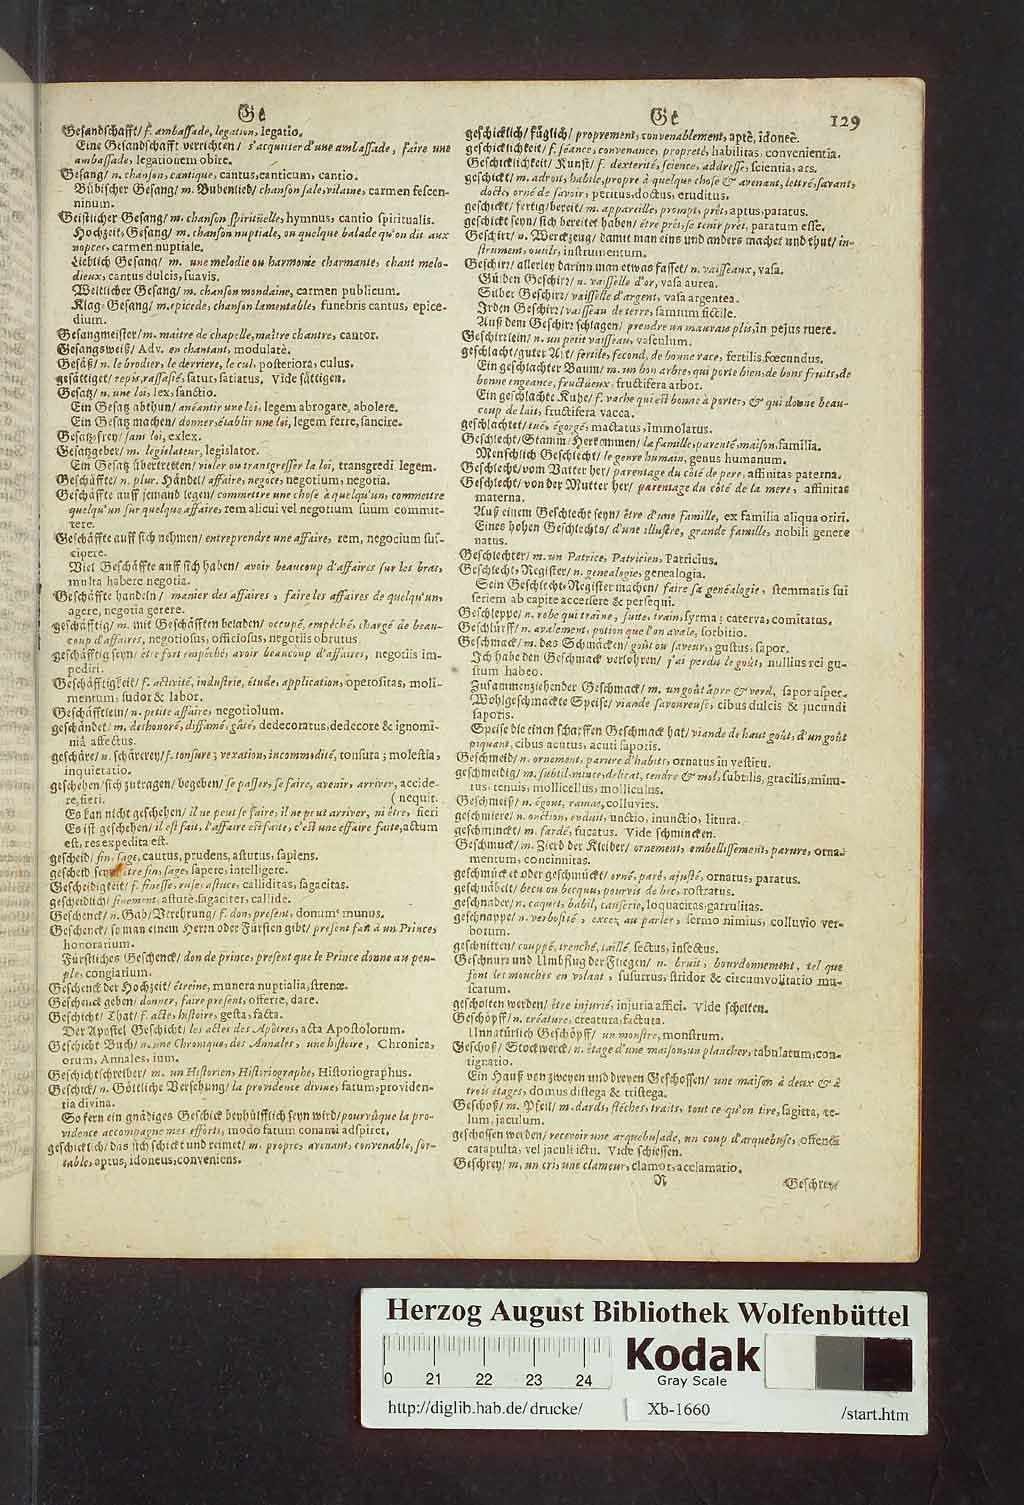 Ge
Gesandschafft/ f. ambassade, legation, legatio.
Eine Gesandschafft verrichten/ s'acquitter d'une ambassade, faire une
ambassade, legationem obire.
Gesang/ n. chanson, cantique, cantus, canticum, cantio.
Bübischer Gesang/ m. Bubenlied/ chanson sale, vilaine, carmen fescen-
ninum.
Geistlicher Gesang/ m. chanson spirituelle, hymnus, cantio spiritualis.
Hochzeit, Gesang/ m. chanson nuptiale, ou quelque balade qu'on dit aux
nopces, carmen nuptiale.
Lieblich Gesang/ m. une melodie ou harmonie charmante, chant melo-
dieux, cantus dulcis, suavis.
Weltlicher Gesang/ m. chanson mondaine, carmen publicum.
Klag-Gesang/ m. epicede, chanson lamentable, funebris cantus, epice-
dium.
Gesangmeister/ m. maitre de chapelle, maitre chantre, cantor.
Gesangsweiß/ Adv. en chantant, modulatè.
Gesäß/ n. le brodier, le derriere, le cul, posteriora, culus.
gesättiget/ repû, rassasié, satur, satiatus. Vide sättigen.
Gesatz/ n. une loi, lex, sanctio.
Ein Gesatz abthun/ anéantir une loi, legem abrogare, abolere.
Ein Gesatz machen/ donner, établir une loi, legem ferre, sancire.
Gesatz-frey/ sans loi, exlex.
Gesatzgeber/ m. legislateur, legislator.
Ein Gesatz übertretten/ violer ou transgresser la loi, transgredi legem.
Geschäffte/ n. plur. Händel/ affaire, negoce, negotium, negotia.
Geschäffte auff jemand legen/ commettre une chose à quelqu'un, commettre
quelqu'un sur quelque affaire, rem alicui vel negotium suum commit-
tere.
Geschäffte auff sich nehmen/ entreprendre une affaire, rem, negocium sus-
cipere.
Viel Geschäffte auff sich haben/ avoir beaucoup d'affaires sur les bras,
multa habere negotia.
Geschäffte handeln/ manier des affaires, faire les affaires de quelqu'un,
agere, negotia gerere.
geschäfftig/ m. mit Geschäfften beladen/ occupé, empêché, chargé de beau-
coup d'affaires, negotiosus, officiosus, negotiis obrutus.
geschäfftig seyn/ être fort empêché, avoir beaucoup d'affaires, negotiis im-
pediri.
Geschäfftigkeit/ f. activité, industrie, étude, application, operositas, moli-
mentum, sudor & labor.
Geschäfftlein/ n. petite affaire, negotiolum.
geschändet/ m. deshonoré, diffamé, gâté, dedecoratus, dedecore & ignomi-
niâ affectus.
geschäre/ n. schärerey/ f. tonsure; vexation, incommodité, tonsura; molestia,
inquietatio.
geschehen/ sich zutragen/ begeben/ se passer, se faire, avenir, arriver, accide-
re, fieri. (nequit.
Es kan nicht geschehen/ il ne peut se faire, il ne peut arriver, ni être, fieri
Es ist geschehen/ il est fait, l'affaire est faite, c'est une affaire faite, actum
est, res expedita est.
gescheid/ fin, sage, cautus, prudens, astutus, sapiens.
gescheid seyn/ être fin, sage, sapere, intelligere.
Gescheidigkeit/ f. finesse, ruse, astuce, calliditas, sagacitas.
gescheidlich/ finement, astutè, sagaciter, callide.
Geschenck/ n. Gab/ Verehrung/ f. don, present, donum, munus.
Geschenck/ so man einem Herrn oder Fürsten gibt/ present fait à un Prince,
honorarium.
Fürstliches Geschenck/ don de prince, present que le Prince donne au peu-
ple, congiarium.
Geschenck der Hochzeit/ étreine, munera nuptialia, strenæ.
Geschenck geben/ donner, faire present, offerre, dare.
Geschicht/ That/ f. acte, histoire, gesta, facta.
Der Apostel Geschicht/ les actes des Apôtres, acta Apostolorum.
Geschicht Buch/ n. une Chronique, des Annales, une histoire, Chronica,
orum, Annales, ium.
Geschichtschreiber/ m. un Historien, Historiographe, Historiographus.
Geschick/ n. Göttliche Versehung/ la providence divine, fatum, providen-
tia divina.
So fern ein gnädiges Geschick beyhülfflich seyn wird/ pourvûque la pro-
vidence accompagne mes efforts, modo fatum conami adspiret.
geschicklich/ das sich schickt und reimet/ m. propre, avenant, convenable, sor-
table, aptus, idoneus, conveniens.
Ge
129
geschicklich/ füglich/ proprement, convenablement, aptè, idoneè.
geschicklichkeit/ f. séance, convenance, propreté, habilitas, convenientia.
Geschicklichkeit/ Kunst/ f. dexterité, science, addresse, scientia, ars.
geschickt/ m. adroit, habile, propre à quelque chose & avenant, lettré, savant,
docte, orné de savoir, peritus, doctus, eruditus.
geschickt/ fertig/ bereit/ m. appareille, prompt, prêt, aptus, paratus.
geschickt seyn/ sich bereitet haben/ être prêt, se tenir prêt, paratum esse.
Geschirr/ n. Werckzeug/ damit man eins und anders machet und thut/ in-
strument, outils, instrumentum.
Geschirr/ allerley darinn man etwas fasset/ n. vaisseaux, vasa.
Gülden Geschirr/ n. vaisselle d'or, vasa aurea.
Silber Geschirr/ vaisselle d'argent, vasa argentea.
Irden Geschirr/ vaisseau de terre, samium fictile.
Auß dem Geschirr schlagen/ prendre un mauvais plis, in pejus ruere.
Geschirrlein/ n. un petit vaisseau, vasculum.
geschlacht/ guter Art/ fertile, fecond, de bonne race, fertilis, fœcundus.
Ein geschlachter Baum/ m. un bon arbre, qui porte bien, de bons fruits, de
bonne engeance, fructueux, fructifera arbor.
Ein geschlachte Kuhe/ f. vache qui est bonne à porter, & qui donne beau-
coup de lait, fructifera vacca.
geschlachtet/ tué, égorgé, mactatus, immolatus.
Geschlecht/ Stamm/ Herkommen/ la famille, parenté, maison, familia.
Menschlich Geschlecht/ le genre humain, genus humanum.
Geschlecht/ vom Vatter her/ parentage du côté de pere, affinitas paterna.
Geschlecht/ von der Mutter her/ parentage du côté de la mere, affinitas
materna.
Auß einem Geschlecht seyn/ être d'une famille, ex familia aliqua oriri.
Eines hohen Geschlechts/ d'une illustre, grande famille, nobili genere
natus.
Geschlechter/ m. un Patrice, Patricien, Patricius.
Geschlecht-Register/ n. genealogie, genealogia.
Sein Geschlecht-Register machen/ faire sa genéalogie, stemmatis sui
seriem ab capite accersere & persequi.
Geschleppe/ n. robe qui traine, suite, train, syrma; caterva, comitatus.
Geschlürff/ n. avalement, potion que l'on avale, sorbitio.
Geschmack/ m. das Schmäcken/ goût ou saveur, gustus, sapor.
Ich habe den Geschmack verlohren/ j'ai perdu le goût, nullius rei gu-
stum habeo.
Zusammenziehender Geschmack/ m. un goût âpre & verd, sapor asper.
Wohlgeschmackte Speise/ viande savoureuse, cibus dulcis & jucundi
saporis.
Speise die einen scharffen Geschmack hat/ viande de haut goût, d'un goût
piquant, cibus acutus, acuti saporis.
Geschmeid/ n. ornement, parure d'habits, ornatus in vestitu.
geschmeidig/ m. subtil, mince, delicat, tendre & mol, subtilis, gracilis, minu-
tus, tenuis, mollicellus, molliculus.
Geschmeiß/ n. égout, ramas, colluvies.
geschmiere/ n. onction, enduit, unctio, inunctio, litura.
geschminckt/ m. fardé, fucatus. Vide schmincken.
Geschmuck/ m. Zierd der Kleider/ ornement, embellissement, parure, orna-
mentum, concinnitas.
geschmücket oder geschmückt/ orné, paré, ajusté, ornatus, paratus.
geschnäbelt/ becu ou becqué, pourvû de bec, rostratus.
geschnader/ n. caquet, babil, causerie, loquacitas, garrulitas.
geschnappe/ n. verbosité, excez au parler, sermo nimius, colluvio ver-
borum.
geschnitten/ couppé, trenché, taillé, sectus, insectus.
Geschnurr und Umbflug der Fliegen/ n. bruit, bourdonnement, tel que
font les mouches en volant, susurrus, stridor & circumvolitatio mu-
scarum.
gescholten werden/ être injurié, injuria affici. Vide schelten.
Geschöpff/ n. créature, creatura, factura.
Unnatürlich Geschöpff/ un monstre, monstrum.
Geschoß/ Stockwerck/ n. étage d'une maison, un plancher, tabulatum, con-
tignatio.
Ein Hauß von zweyen und dreyen Geschossen/ une maison à deux & à
trois étages, domus distega & tristega.
Geschoß/ m. Pfeil/ m. dards, fléches, traits, tout ce qu'on tire, sagitta, te-
lum, jaculum.
geschossen werden/ recevoir une arquebusade, un coup d'arquebuse, offendi
catapulta, vel jaculi ictu. Vide schiessen.
Geschrey/ m. un cri, une clameur, clamor, acclamatio.
R
Geschrey/
Herzog August Bibliothek Wolfenbüttel
0 21 22 23 24
Kodak
Gray Scale
http://diglib.hab.de/drucke/ Xb-1660 /start.htm